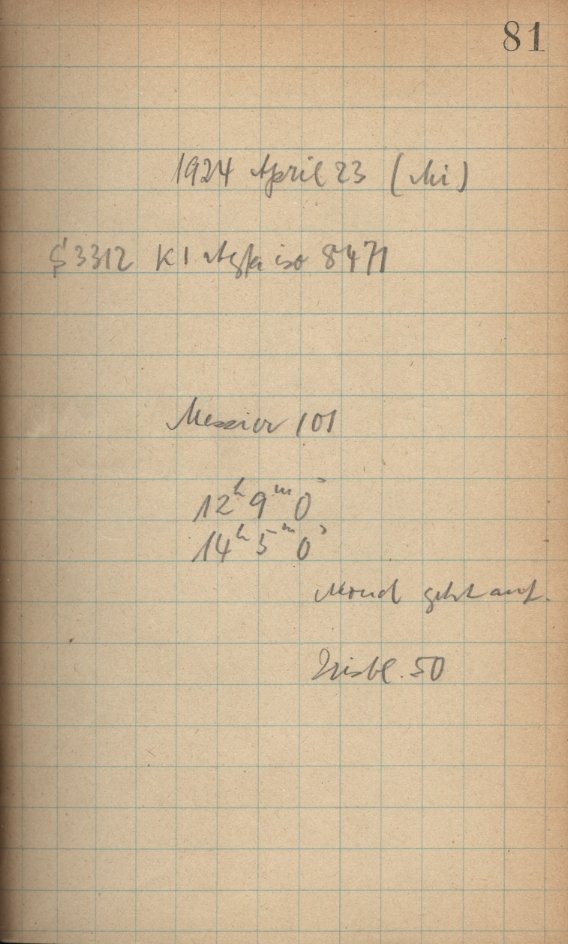 81
1924 April 23 (Mi)
3312 K1 Agfa iso 8471
Messier 101
12h 9m 0s
14h 5m 0s
Mond geht auf.
Irisbl. 50